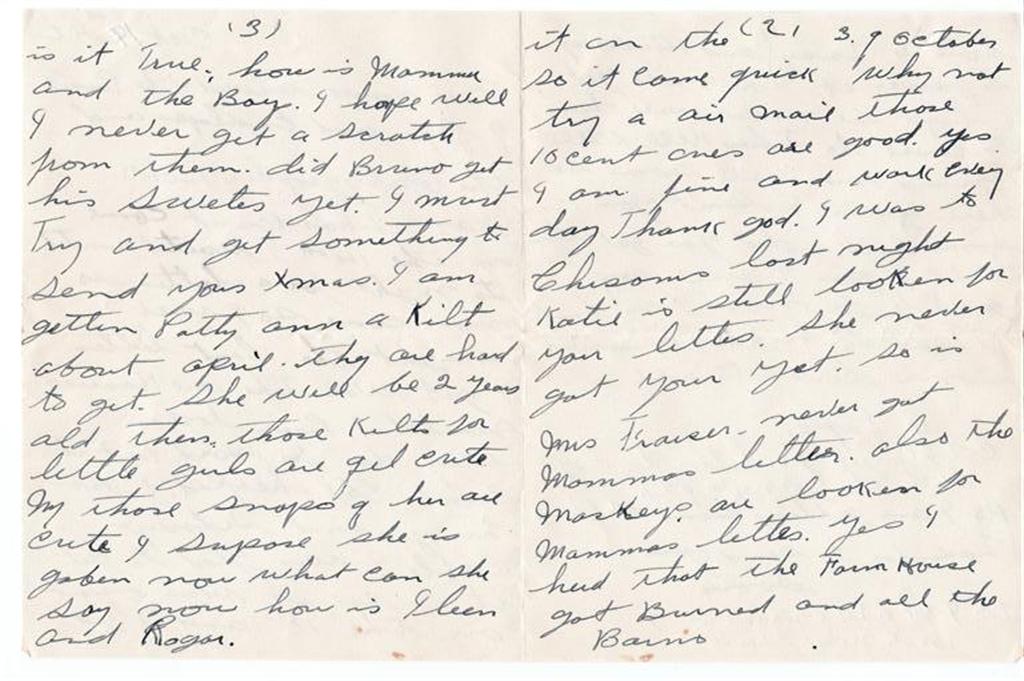 (2)
it on the 3. 9 october
so it come quick Why not
try a air mail those
10 cent ones are good. yes
I am fine and work every
day Thank god. I was to
Chisoms last night
Katie is still looken for
your letter. She never
got your yet. so is
Mrs Fraiser. never got
Mammas letter. also the
Maskeys. are looken for
Mammas letter. Yes I
herd that the Farm House
got Burned and all the
Barns.
(3)
is it True. how is Mamma
and the Boy. I hope well
I never get a scratch
from them. did Bruno get
his Sweter yet. I must
Try and get something to
send yous Xmas. I am
getten Patty ann a Kilt
about april. they are hard
to get. She will be 2 years
old then. those Kilts for
little girls are cute
My those snaps of her are
cute I supose she is
gaben now what can she
say now how is Ileen
and Rogar.